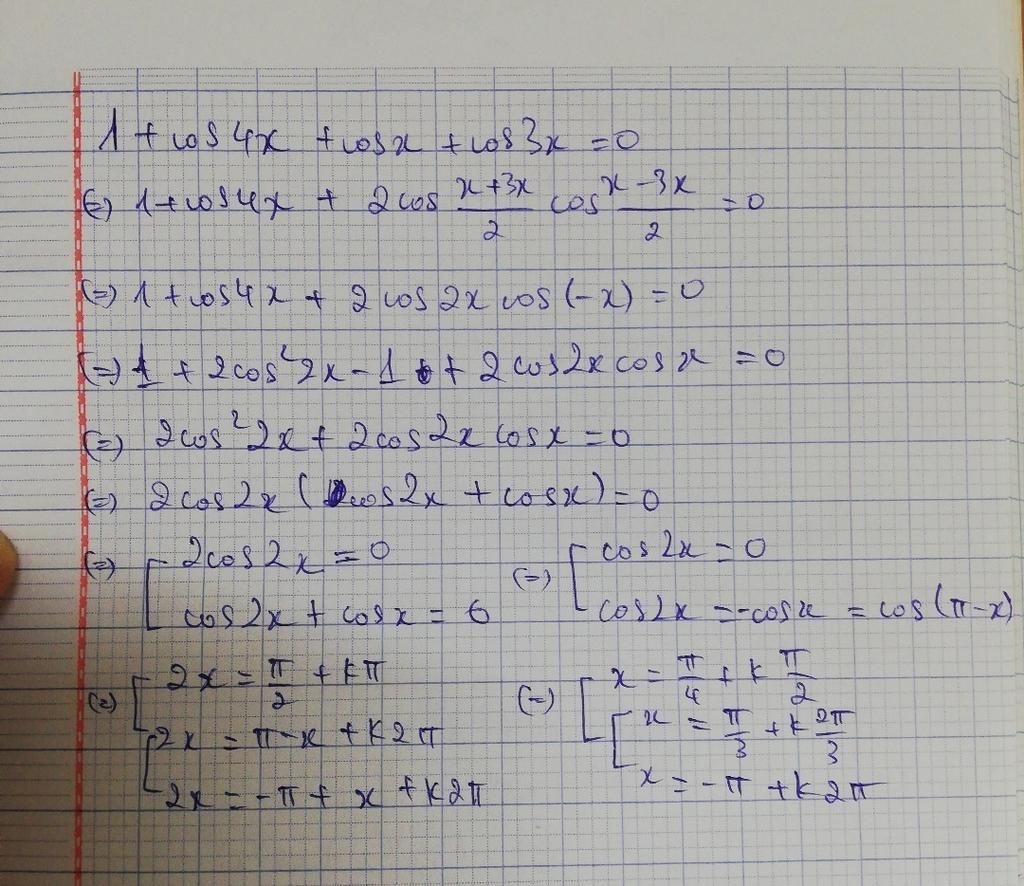 1 + cos4x + cosx + cos3x = 0
(=) 1 + cos4x + 2cos (x+3x)/2 cos (x-3x)/2 = 0
(=) 1 + cos4x + 2cos2x cos(-x) = 0
(=) 1 + 2cos²2x - 1 + 2cos2x cosx = 0
(=) 2cos²2x + 2cos2x cosx = 0
(=) 2cos2x (cos2x + cosx) = 0
(=) [ 2cos2x = 0 (=) [ cos2x = 0
cos2x + cosx = 0 cos2x = -cosx = cos(π-x)
(=) [ 2x = π/2 + kπ (=) [ x = π/4 + k π/2
[ 2x = π-x + k2π [ x = π/3 + k 2π/3
2x = -π + x + k2π x = -π + k2π